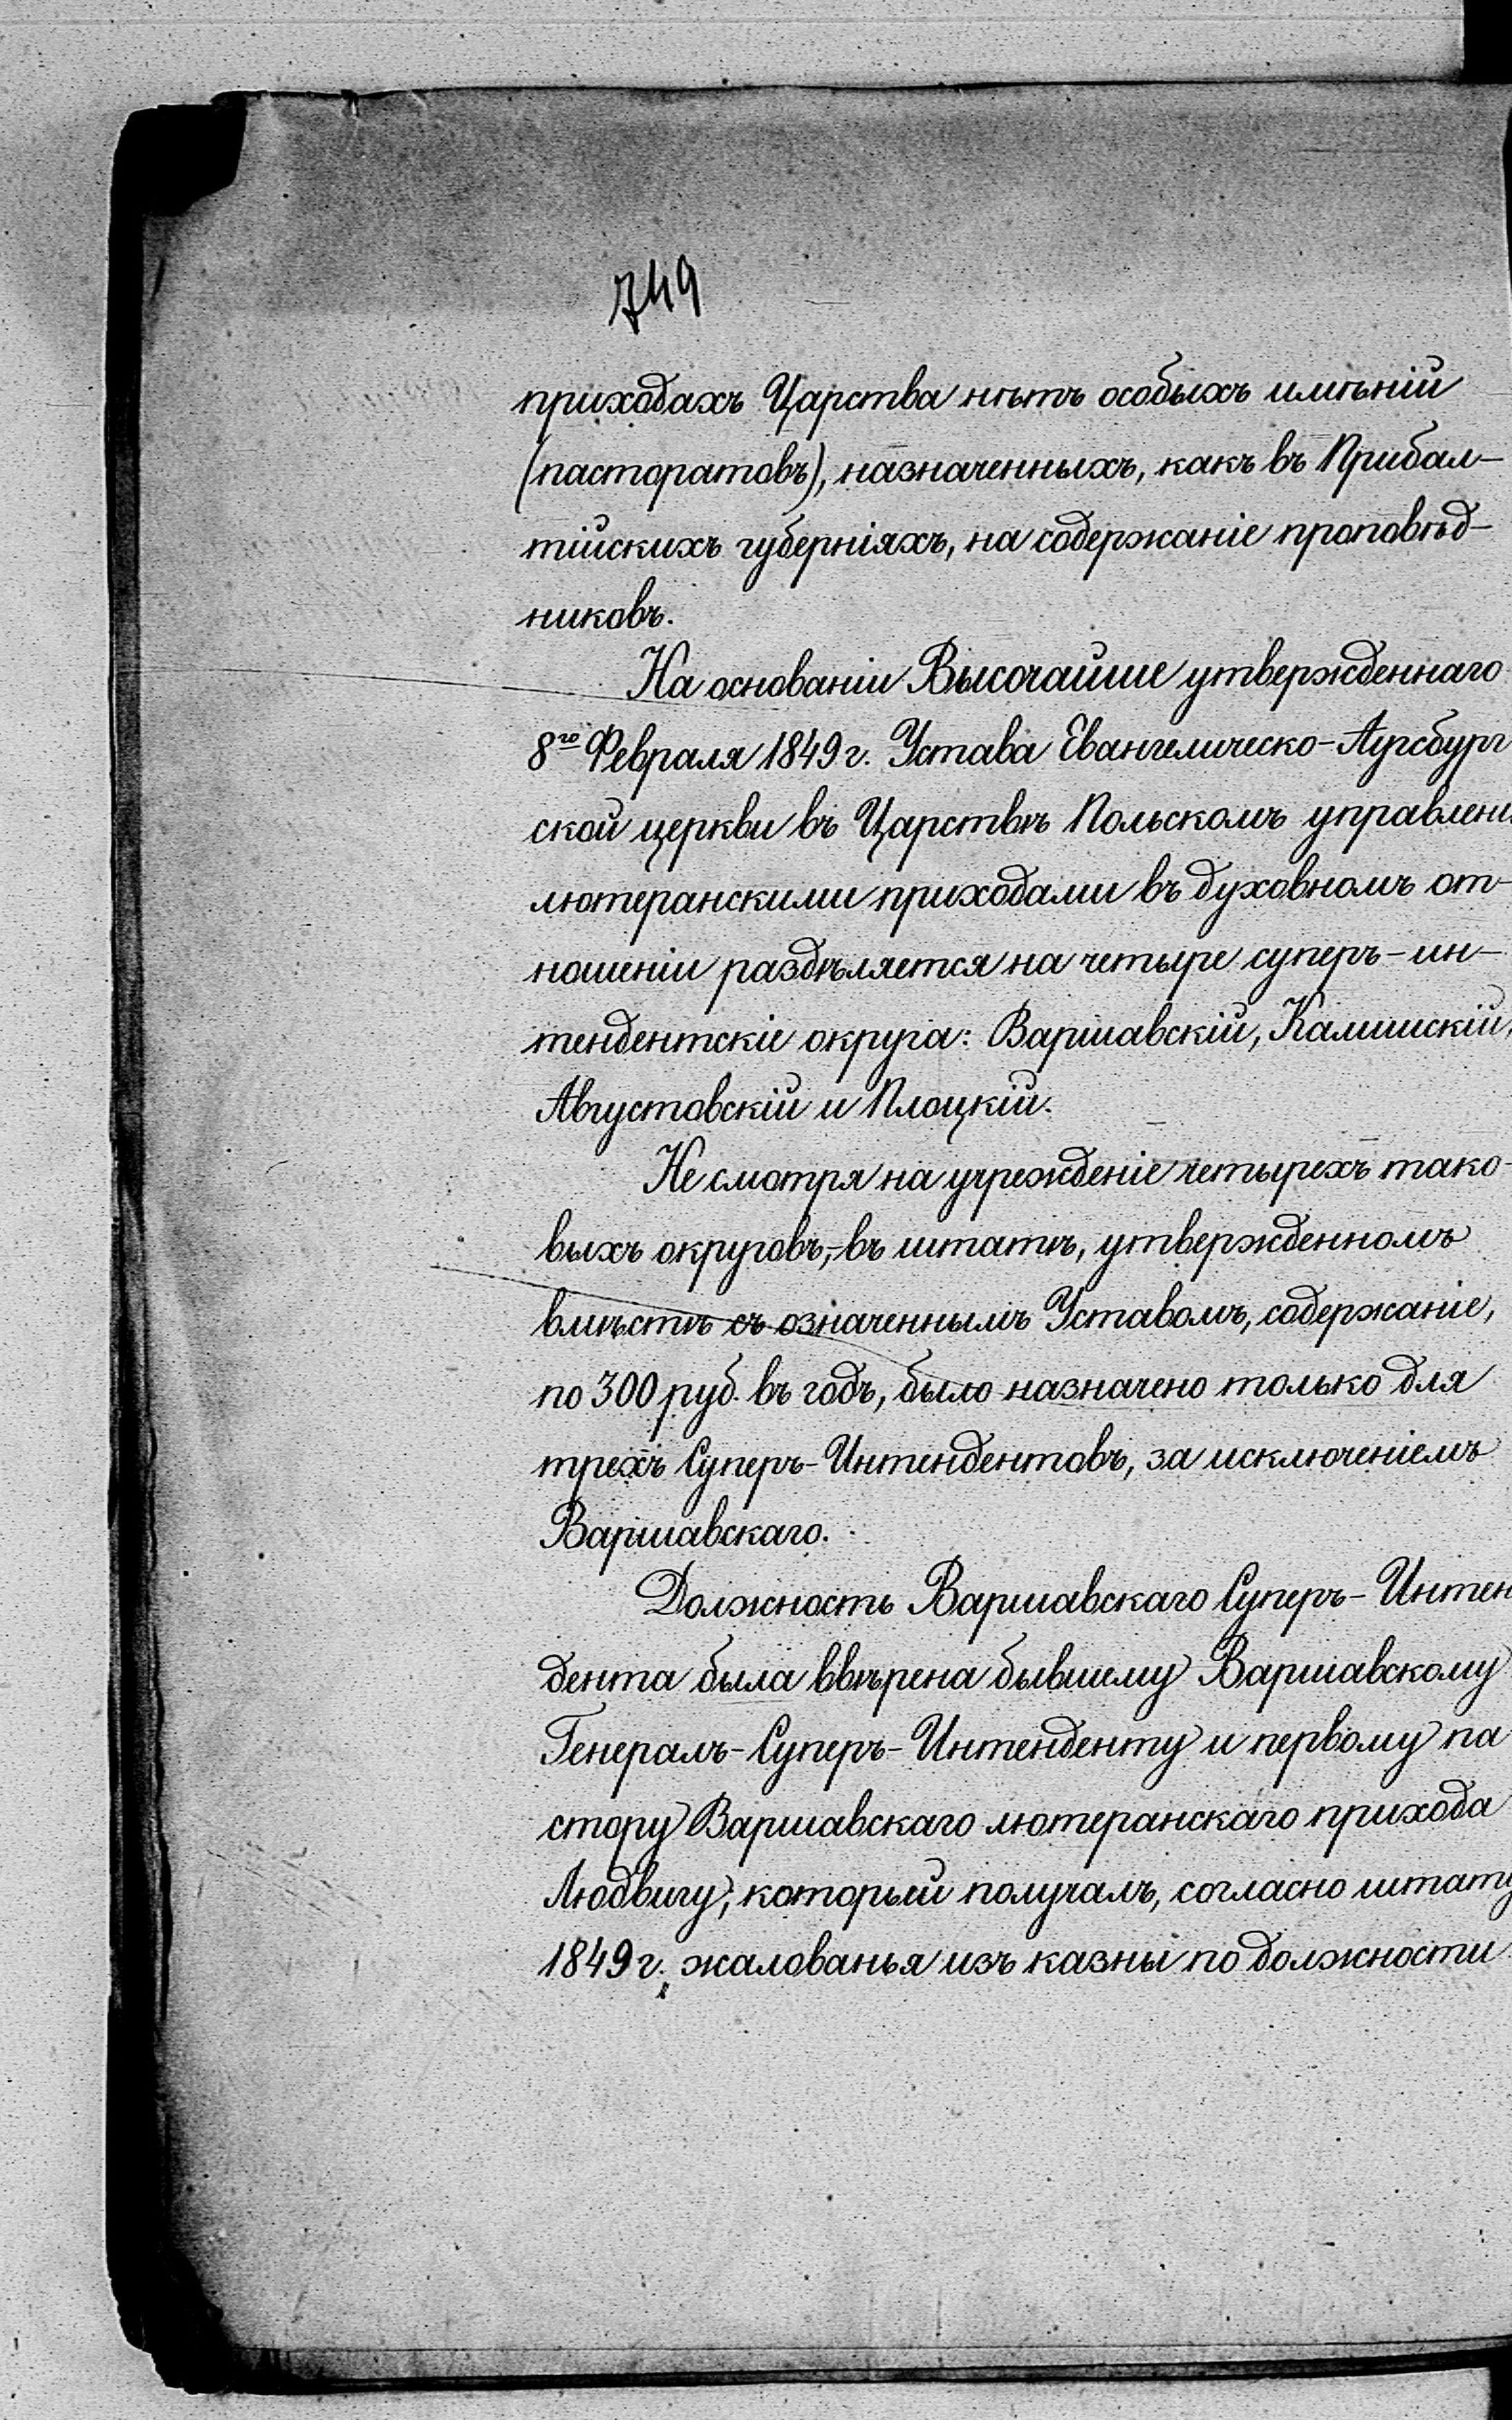 749
приходахъ Царства нѣтъ особыхъ имѣній
(пасторатовъ), назначенныхъ, какъ въ Прибал-
тійскихъ губерніяхъ, на содержаніе проповѣд-
никовъ.
На основаніи Высочайше утвержденнаго
8го Февраля 1849 г. Устава Евангелическо-Аугсбург
ской церкви въ Царствѣ Польскомъ управлені
лютеранскими приходами въ духовномъ от-
ношеніи раздѣляется на четыре суперъ-ин-
тендентскіе округа: Варшавскій, Калишскій,
Августовскій и Плоцкій.
Не смотря на учрежденіе четырехъ тако-
выхъ округовъ,-въ штатѣ, утвержденномъ
вмѣстѣ съ означеннымъ Уставомъ, содержаніе,
по 300 руб. въ годъ, было назначено только для
трехъ Суперъ-Интендентовъ, за исключеніемъ
Варшавскаго.
Должность Варшавскаго Суперъ-Интен
дента была ввѣрена бывшему Варшавскому
Генералъ-Суперъ-Интенденту и первому па
стору Варшавскаго лютеранскаго прихода
Людвигу, который получалъ, согласно штату
1849 г., жалованья изъ казны по должности